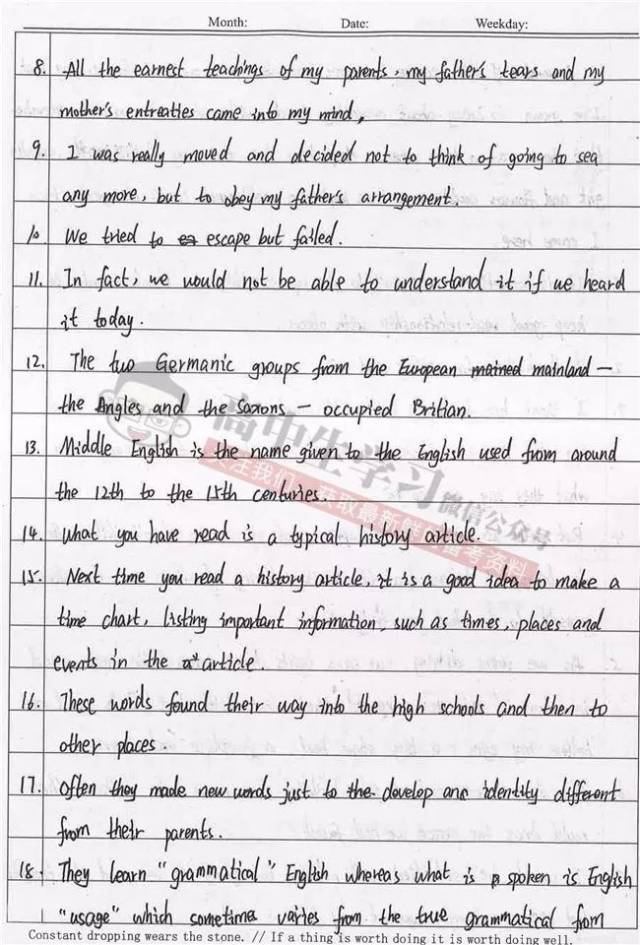 Month: Date: Weekday:
8. All the earnest teachings of my parents, my father's tears and my
mother's entreaties came into my mind,
9. I was really moved and decided not to think of going to sea
any more, but to obey my father's arrangement.
10 We tried to escape but failed.
11. In fact, we would not be able to understand it if we heard
it today.
12. The two Germanic groups from the European mained mainland —
the Angles and the Saxons — occupied Britian.
13. Middle English is the name given to the English used from around
the 12th to the 15th centuries.
14. What you have read is a typical history article.
15. Next time you read a history article, it is a good idea to make a
time chart, listing important information, such as times, places and
events in the article.
16. These words found their way into the high schools and then to
other places.
17. Often they made new words just to the develop an identity different
from their parents.
18. They learn "grammatical" English whereas what is spoken is English
"usage" which sometime varies from the true grammatical from
Constant dropping wears the stone. // If a thing is worth doing it is worth doing well.
高中生学习
微信公众号
关注我们 获取最新 备考资料